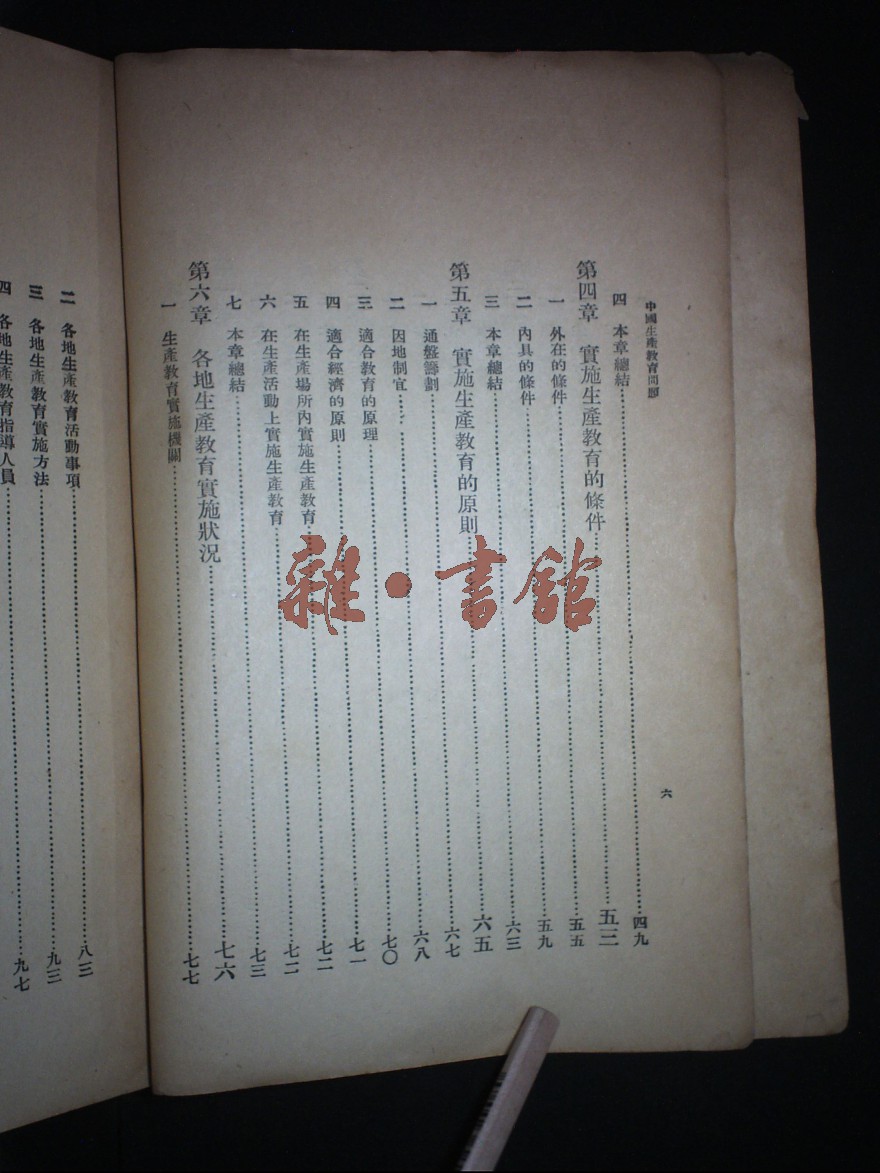 中國生產教育問題
六
四 本章總結……四九
第四章 實施生產教育的條件……五三
一 外在的條件……五五
二 內具的條件……五九
三 本章總結……六三
第五章 實施生產教育的原則……六五
一 通盤籌劃……六七
二 因地制宜……六八
三 適合教育的原理……七〇
四 適合經濟的原則……七一
五 在生產場所內實施生產教育……七二
六 在生產活動上實施生產教育……七二
七 本章總結……七三
第六章 各地生產教育實施狀況……七六
一 生產教育實施機關……七七
二 各地生產教育活動事項……八三
三 各地生產教育實施方法……九三
四 各地生產教育指導人員……九七
雜·書館